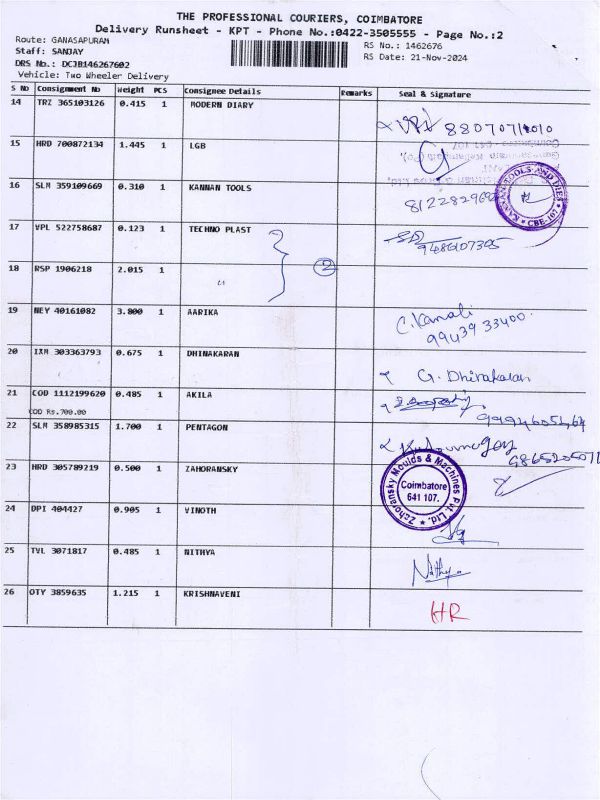 THE PROFESSIONAL COURIERS, COIMBATORE
Delivery Runsheet - KPT - Phone No.:0422-3505555 - Page No.:2
Route: GANASAPURAM
RS No.: 1462676
Staff: SANJAY
RS Date: 21-Nov-2024
DRS No.: DCJB146267602
Vehicle: Two Wheeler Delivery
S No Consignment No Weight PCS Consignee Details Remarks Seal & Signature
14 TRZ 365103126 0.415 1 MODERN DIARY
15 HRD 700872134 1.445 1 LGB
16 SLM 359109669 0.310 1 KANNAN TOOLS
KANNAN TOOLS AND DIES
CBE-107
17 VPL 522758687 0.123 1 TECHNO PLAST
9486107305
2
18 RSP 1906218 2.015 1 "
19 NEY 40161082 3.800 1 AARIKA C. Kamali
99439 33400
20 IXM 303363793 0.675 1 DHINAKARAN G. Dhinakaran
21 COD 1112199620 0.485 1 AKILA
COD Rs.700.00
22 SLM 358985315 1.700 1 PENTAGON
23 HRD 305789219 0.500 1 ZAHORANSKY
Zahoransky Moulds & Machines Pvt. Ltd.
Coimbatore
641 107.
24 DPI 404427 0.905 1 VINOTH
25 TVL 3071817 0.485 1 NITHYA Nithya
26 OTY 3859635 1.215 1 KRISHNAVENI HR